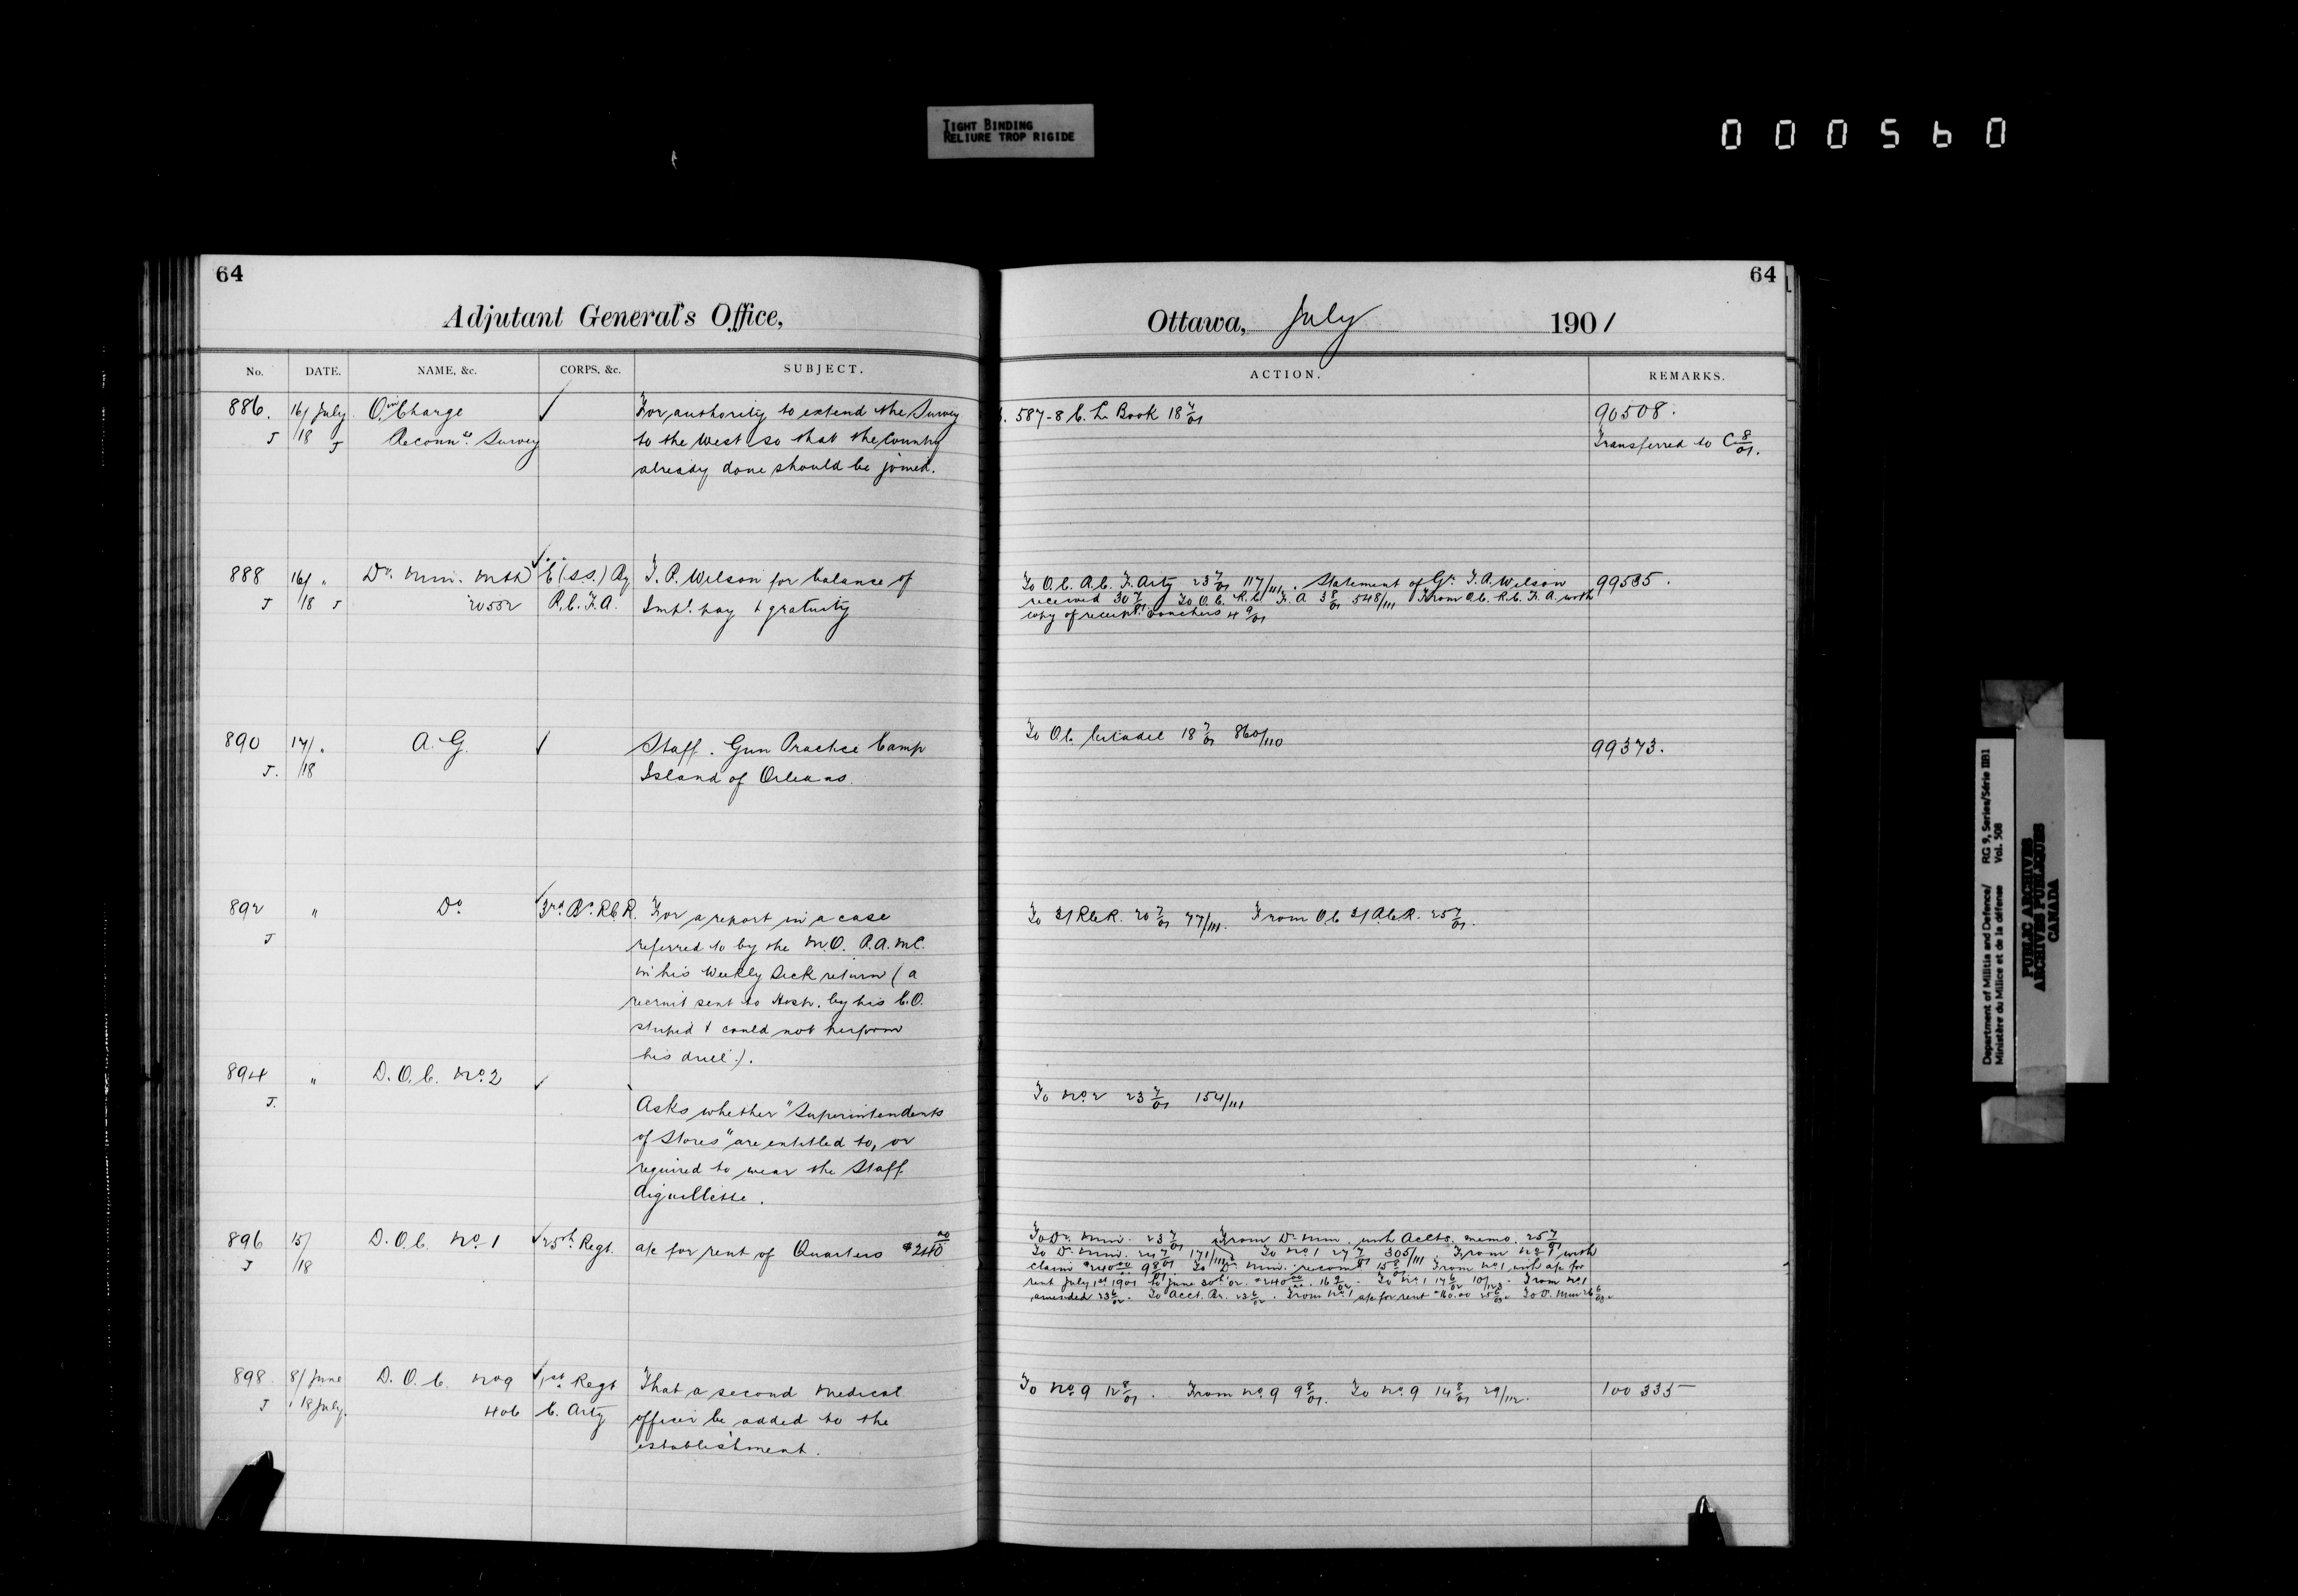 TIGHT BINDING
RELIURE TROP RIGIDE
000560
64
Adjutant General's Office,
No. DATE. NAME, &c. CORPS, &c. SUBJECT.
886. 16/ July O. in Charge ✓ For authority to extend the Survey
J /18 J Reconn.ce Survey to the West so that the Country
already done should be joined.
888 16/ " Dy. Min. Mth ✓ "E" (S.S.) By T. P. Wilson for balance of
J /18 J 20552 R.C.F.A. Impl. pay & gratuity
890 17/ " A.G. ✓ Staff. Gun Practice Camp
J. /18 Island of Orleans.
892 " Do ✓ 3rd Bn. R.C.R. For a report in a case
J referred to by the M.O. P.A.M.C.
in his Weekly Sick return (a
recruit sent to Hosp. by his C.O.
stupid & could not perform
his drill.).
894 " D.O.C. No. 2 ✓
J. Asks whether "Superintendents
of Stores" are entitled to, or
required to wear the Staff
Aiguillette.
896 15/ D.O.C. No. 1 ✓ 25th Regt. a/c for rent of Quarters $240 00
J /18
898 8/ June D.O.C. No 9 ✓ 1st Regt That a second Medical
J /18 July. 406 C. Arty officer be added to the
establishment.
64
Ottawa, July 1901
ACTION. REMARKS.
587-8 C. L. Book 18 7/01 90508.
Transferred to C 8/01.
To O.C. R.C. F. Arty 23 7/01 117/111. Statement of Gr. T.A. Wilson 99535.
received 30 7/01 To O.C. R.C. F.A 3 8/01 548/111 From O.C. R.C. F.A. with
copy of receipt vouchers 4 9/01
To O.C. Citadel 18 7/01 860/110 99373.
To 3/R.C.R. 20 7/01 77/111. From O.C. 3/R.C.R. 25 7/01.
To No. 2 23 7/01 154/111
To Dy. Min. 23 7/01 From Dy. Min. with Accts. memo. 25 7/01
To Dy. Min. 24 7/01 171/111 To No. 1 27 7/01 305/111. From No 1 with
claim $240 00 9 8/01 To Dy. Min. recomd 15 8/01 From No. 1 with a/c for
rent July 1st 1901 to June 30th 02. $240 00. 16 To No. 1 17 6/02 From No. 1
amended 23 6/02. To Acct. Br. 23 6/02. From No. 1 a/c for rent $160.00 25 6/03. To D. Min 26 6/03.
To No. 9 12 8/01. From No. 9 9 8/01. To No. 9 14 8/01 29/112. 100335
Department of Militia and Defence/ RG 9, Series/Série IIB1
Ministère du Milice et de la défense Vol. 508
PUBLIC ARCHIVES
ARCHIVES PUBLIQUES
CANADA